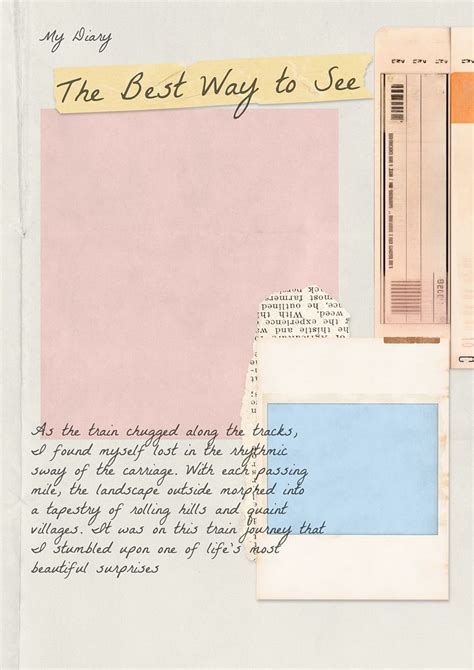 My Diary
The Best Way to See
the thistle and
the experience
weed. With
outlined
most farmers
As the train chugged along the tracks,
I found myself lost in the rhythmic
sway of the carriage. With each passing
mile, the landscape outside morphed into
a tapestry of rolling hills and quaint
villages. It was on this train journey that
I stumbled upon one of life's most
beautiful surprises